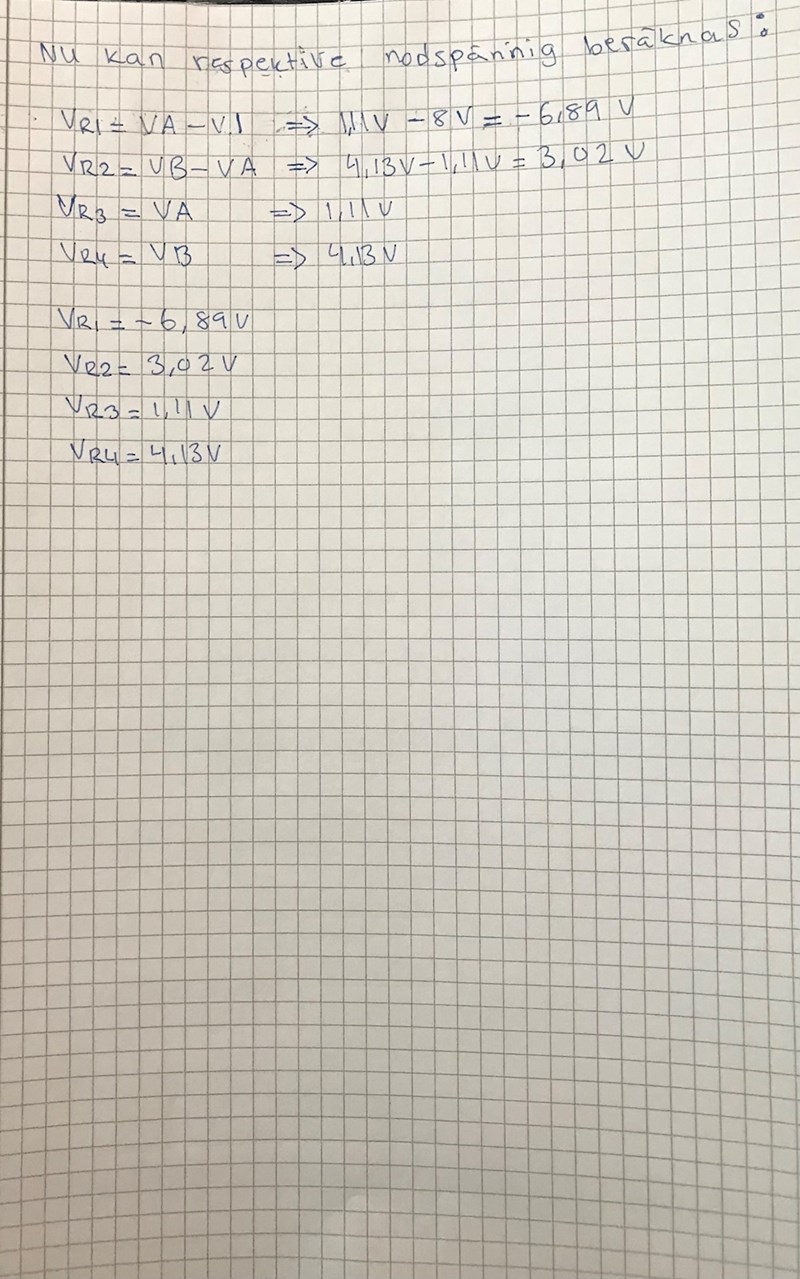 Nu kan respektive nodspännig beräknas:
VR1 = VA - V1 => 1,11V - 8V = -6,89 V
VR2 = VB - VA => 4,13V - 1,11V = 3,02 V
VR3 = VA => 1,11V
VR4 = VB => 4,13V
VR1 = -6,89V
VR2 = 3,02V
VR3 = 1,11 V
VR4 = 4,13V